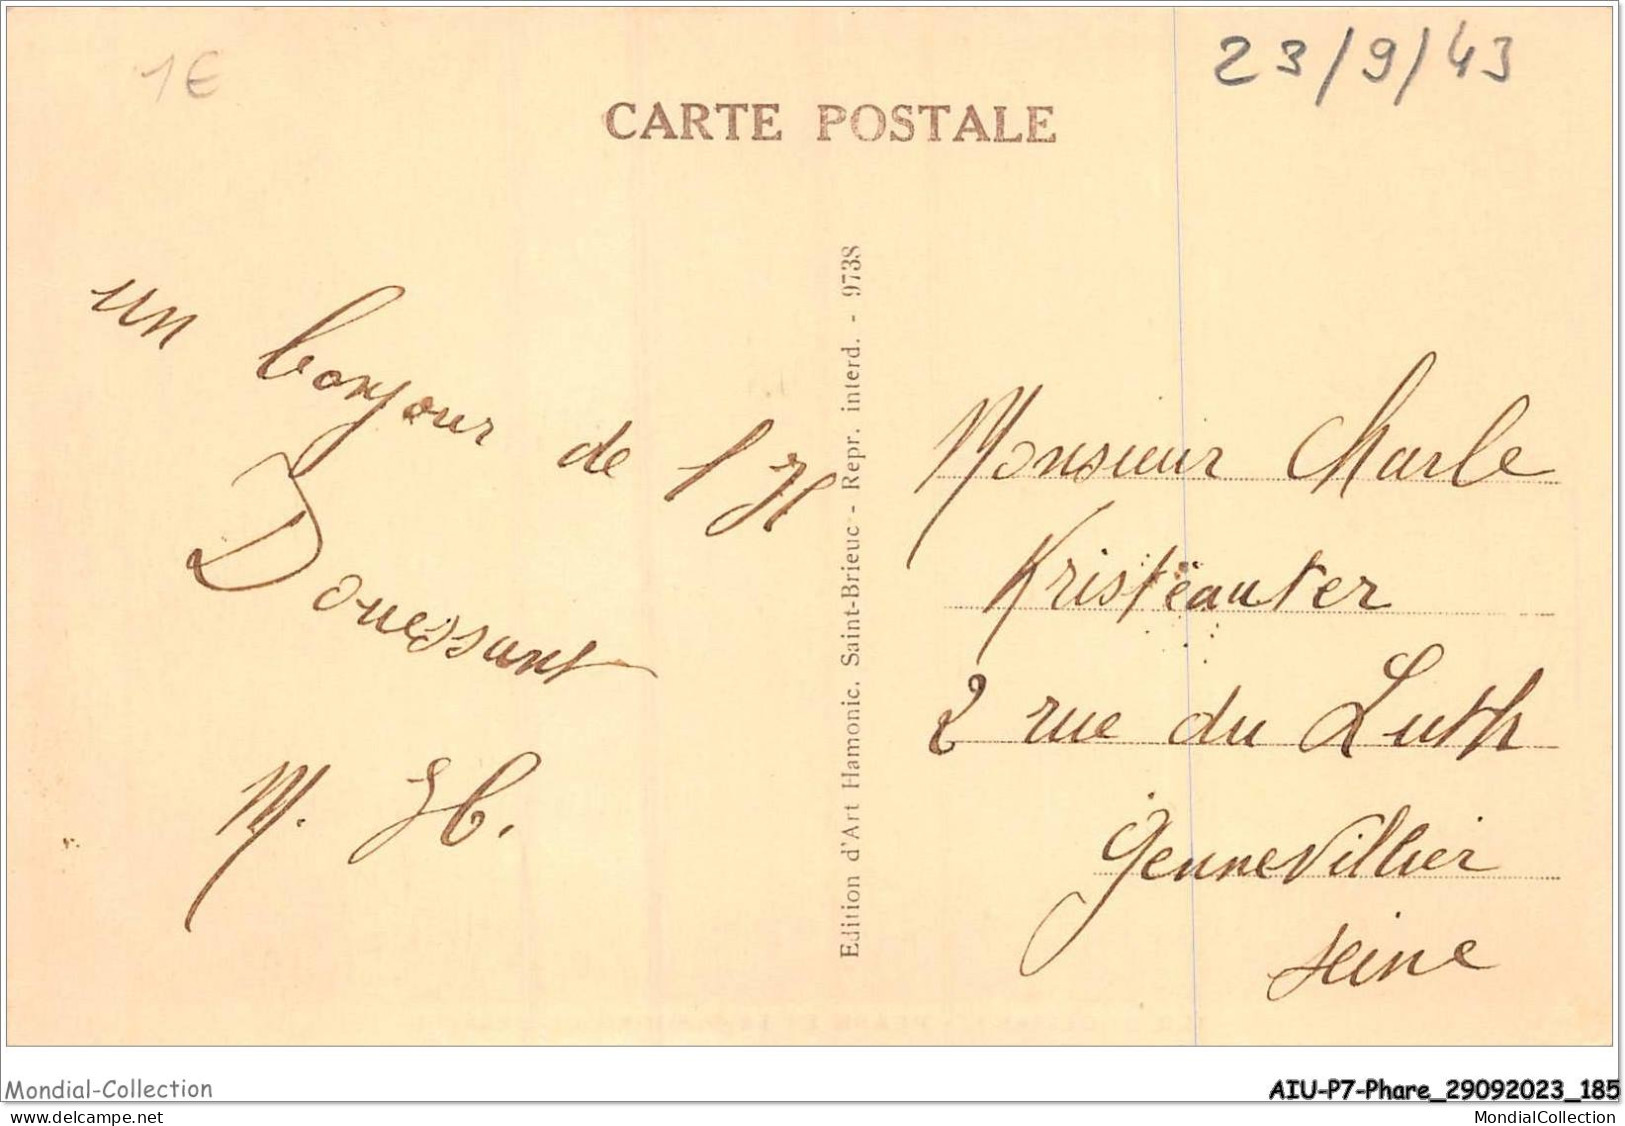 1€
23/9/43
CARTE POSTALE
un bonjour de l'Il
Douessant
M. H.
Edition d'Art Hamonic. Saint-Brieuc - Repr. interd. - 9738
Monsieur Charle
Kristeauter
2 rue du Luth
Gennevillier
Seine
Mondial-Collection
AIU-P7-Phare_29092023_185
www.delcampe.net
MondialCollection